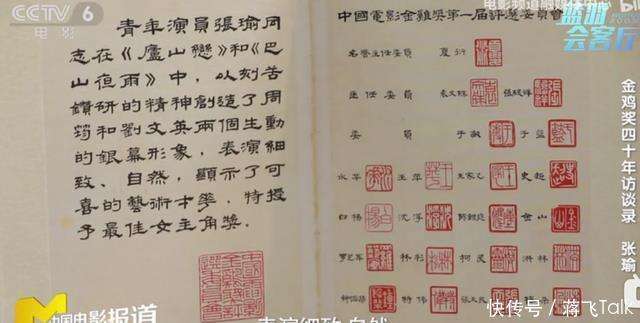 CCTV 6
电影
青年演員張瑜同
志在《廬山戀》和《巴
山夜雨》中，以刻苦
鑽研的精神創造了周
筠和劉文英兩個生動
的銀幕形象，表演細
致、自然，顯示了可
喜的藝術才華，特授
予最佳女主角獎。
电影频道融媒体中心
会客厅
中國電影金雞獎第一屆評選委員會
名譽主任委員 夏衍
主任委員 袁文殊 張駿祥
委員 于敏 于藍
水華 王苹 王家乙 史超
白楊 沈浮 金山
羅藝軍 林杉 柯靈 洪林
鍾惦棐 特偉
金鸡奖四十年访谈录 张瑜
中国电影报道
表演细致 自然
快传号 / 蒋飞Talk